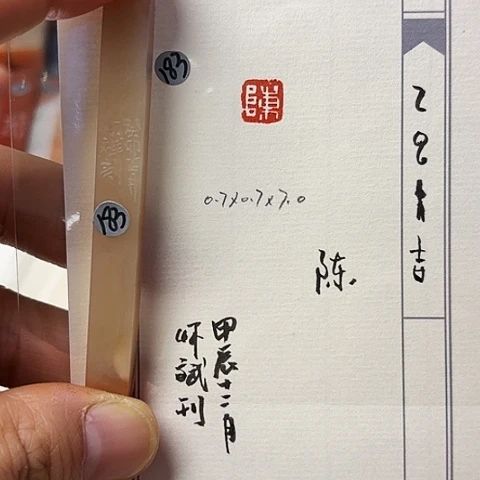 183
陳
183
0.7x0.7x7.0
陈
甲辰十二月
試刊
乙巳大吉